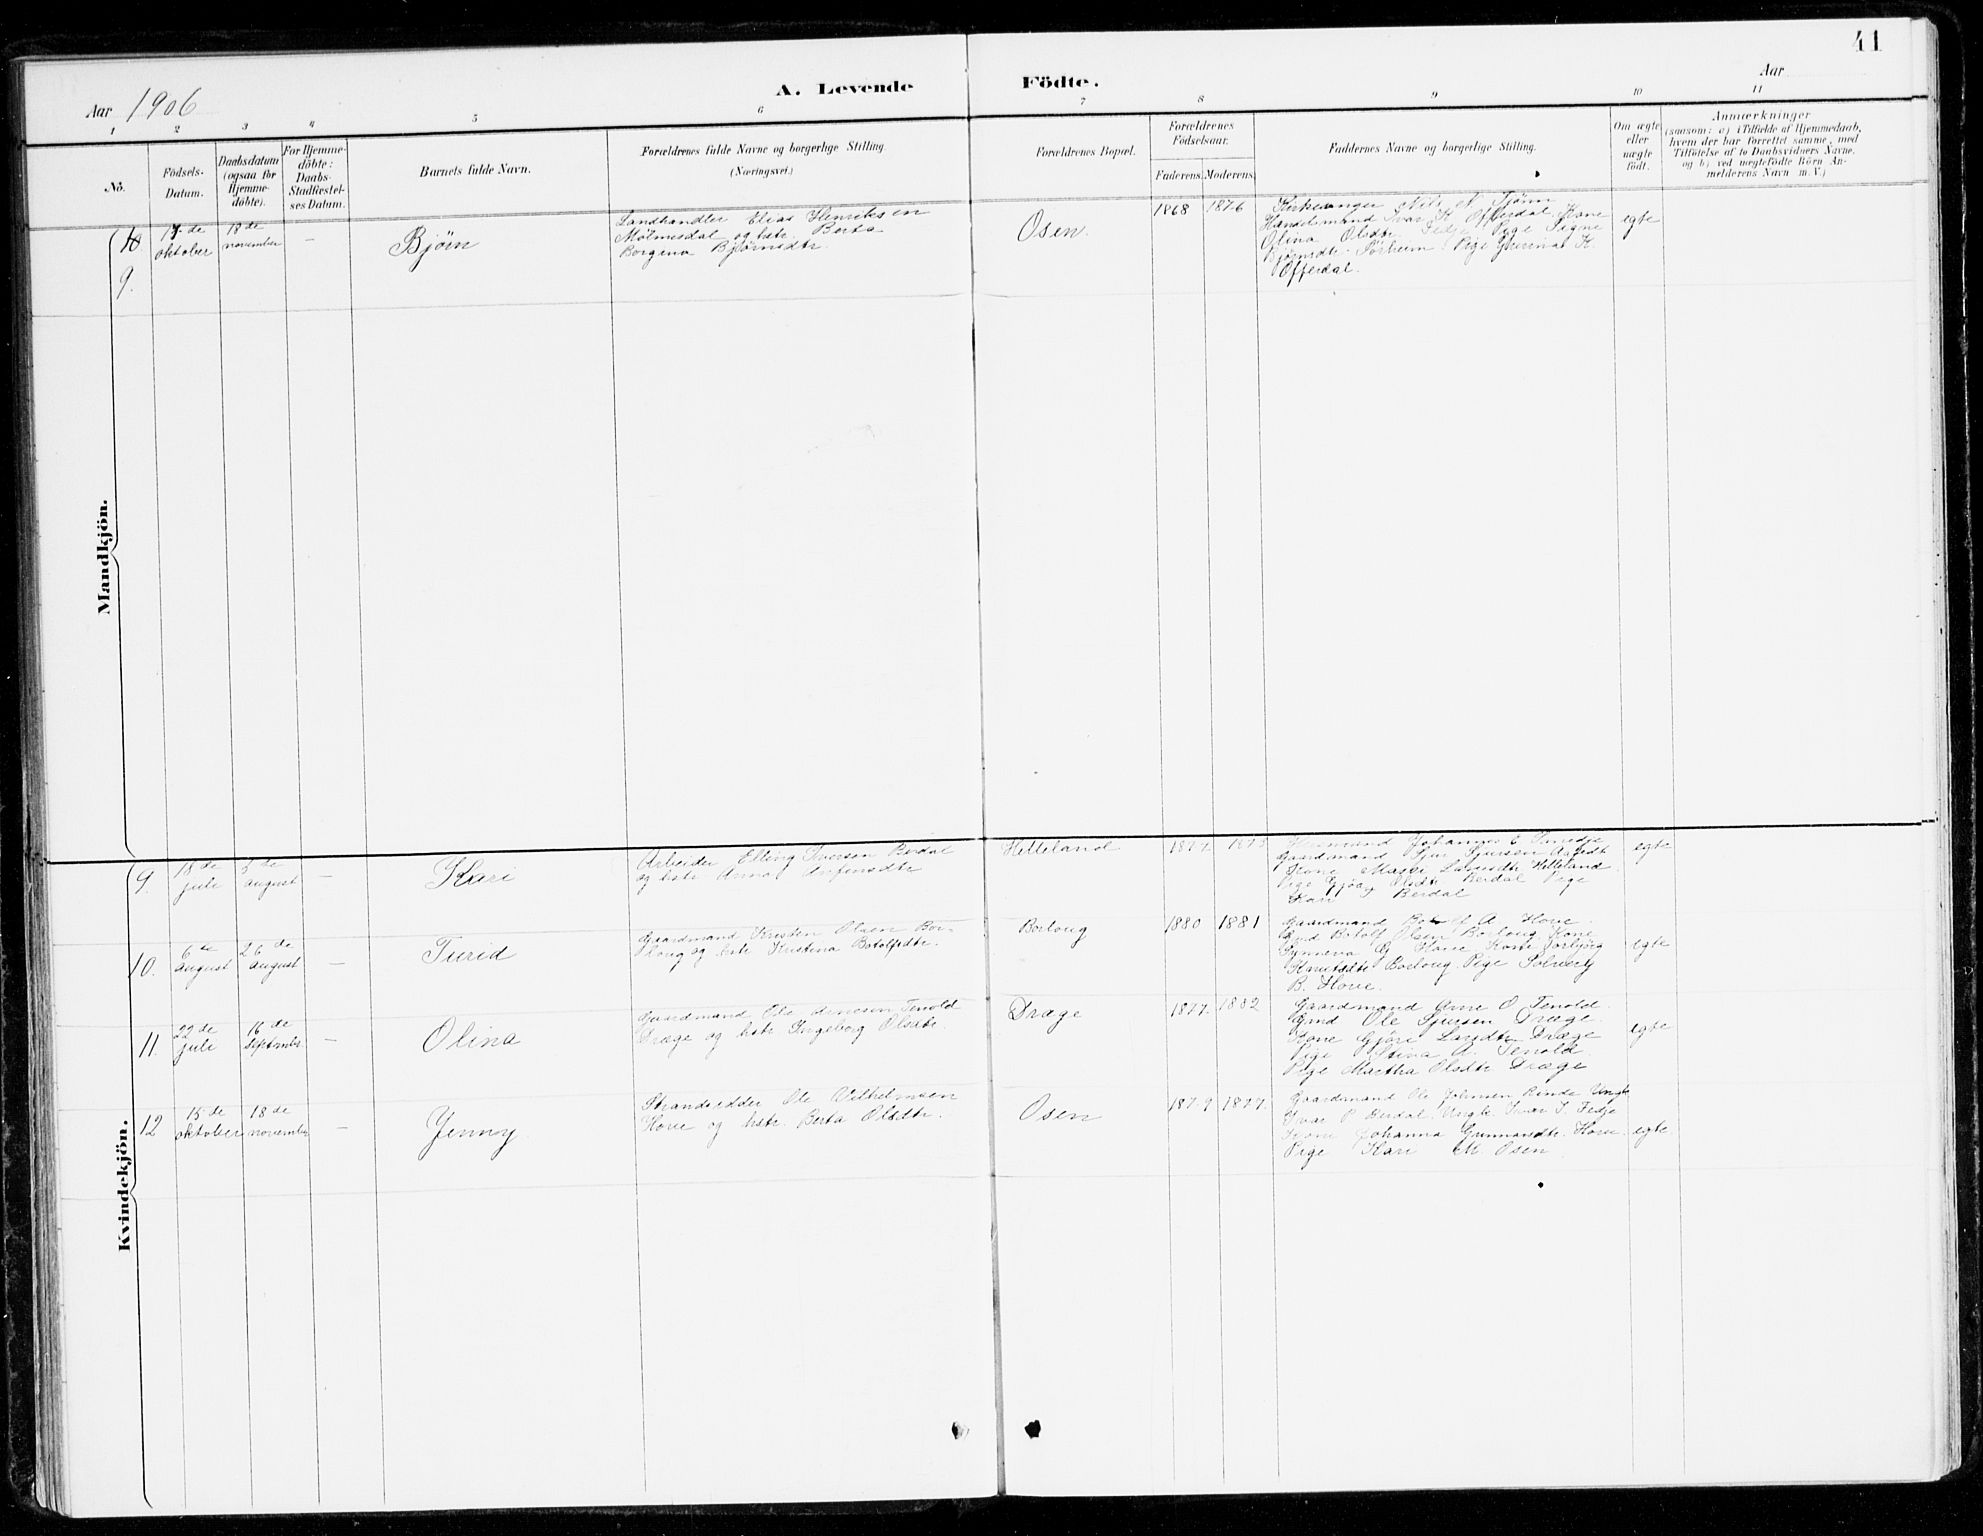 41
Aar 1906
A. Levende Födte.
Aar
1 2 3 4 5 6 7 8 9 10 11
Nô.
Födsels-
Datum.
Daabsdatum
(ogsaa for
Hjemme-
döbte).
For Hjemme-
döbte:
Daabs-
Stadfæstel-
ses Datum.
Barnets fulde Navn.
Forældrenes fulde Navne og borgerlige Stilling.
(Næringsvei.)
Forældrenes Bopæl.
Forældrenes
Födselsaar.
Faderens. Moderens.
Faddernes Navne og borgerlige Stilling.
Om ægte
eller
uægte
födt.
Anmærkninger
(saasom: a) i Tilfælde af Hjemmedaab,
hvem der har forrettet samme, med
Tilföielse af to Daabsvidners Navne,
og b) ved uegtefödte Börn An-
melderens Navn m. V.)
Mandkjön.
9.
de
oktober
18 de
november
—
Bjørn
Landhandler Elias Henriksen
Mølmesdal og hstr. Berta
Borgina Bjørnsdtr.
Osen.
1868 1876
Kirkesanger Nils N. Tjønn
Handelsmand Ivar K. Offerdal Kone
Olina Olsdtr. Fedje Pige Signe
Bjørnsdtr. Sørheim Pige Gunna K.
Offerdal.
egte
Kvindekjön.
9.
18 de
juli
5 de
august
—
Kari
Arbeider Elling Iversen Berdal
og hstr. Anna
Helleland
1877
Johannes E.
Gaardmand Sjur Sjursen
Kone Helleland
Pige Olsdtr. Berdal Pige
Kari I. Berdal
egte
10.
6 te
august
26 de
august
—
Turid
Gaardmand Kristen Olsen Bor-
loug og hstr. Kristina Botolfsdtr.
Borloug
1880 1881
Gaardmand A. Hove.
Gmd Botolf Olsen Borloug Kone
Synneva G. Hove Kone Torbjørg
Borloug. Pige Solveig
B. Hove.
egte
11.
22 de
juli
16 de
September
—
Olina
Gaardmand Ole Arnesen Tenold
Dræge og hstr. Ingeborg Olsdtr.
Dræge
1877. 1882
Gaardmand Arne O. Tenold.
Gmd Ole Sjursen Dræge.
Kone Gjøri Dræge
Pige Stina A. Tenold.
Pige Martha Olsdtr Dræge
egte
12
15 de
oktober
18 de
november
—
Jenny
Strandsidder Ole Vilhelmsen
Hove og hstr. Berta Olsdtr.
Osen
1879 1877.
Gaardmand Ole Johnsen Rinde Ungk.
Ivar P. Berdal, Ungk. Ivar I. Fedje
Kone Johanna Gunnarsdtr. Hove
Pige Kari M. Osen
egte.